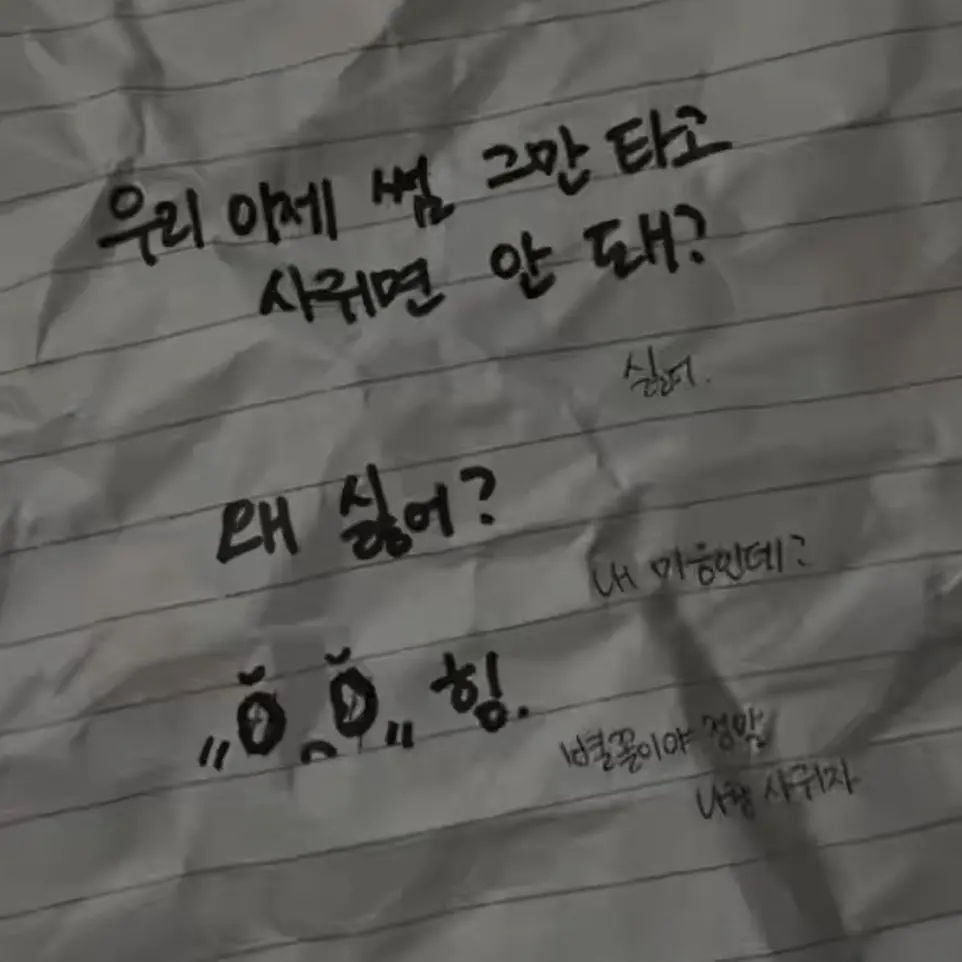 우리 이제 썸 그만 타고
사귀면 안 돼?
싫어.
왜 싫어?
내 마음인데?
힝.
별꼴이야 정말
나랑 사귀자